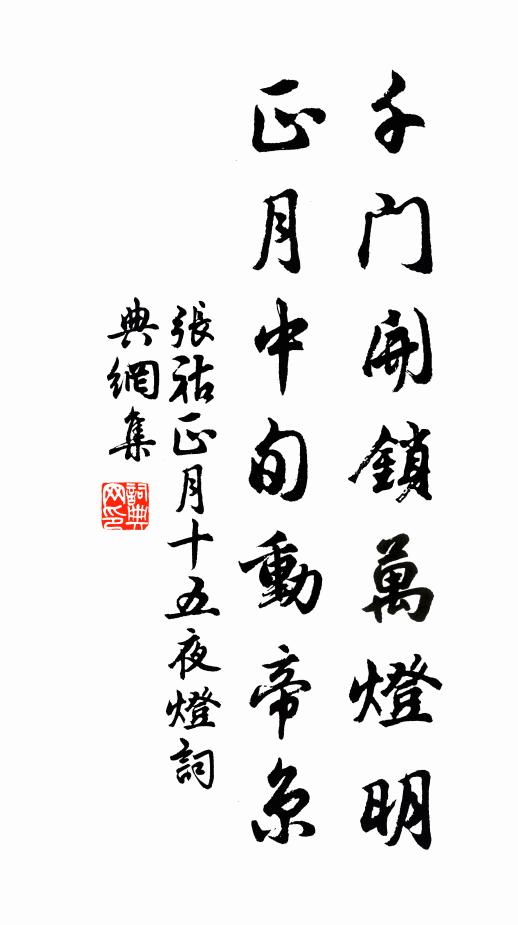 千門開鎖萬燈明
正月中旬動帝京
張祜正月十五夜燈詞
典網集
詞典網印